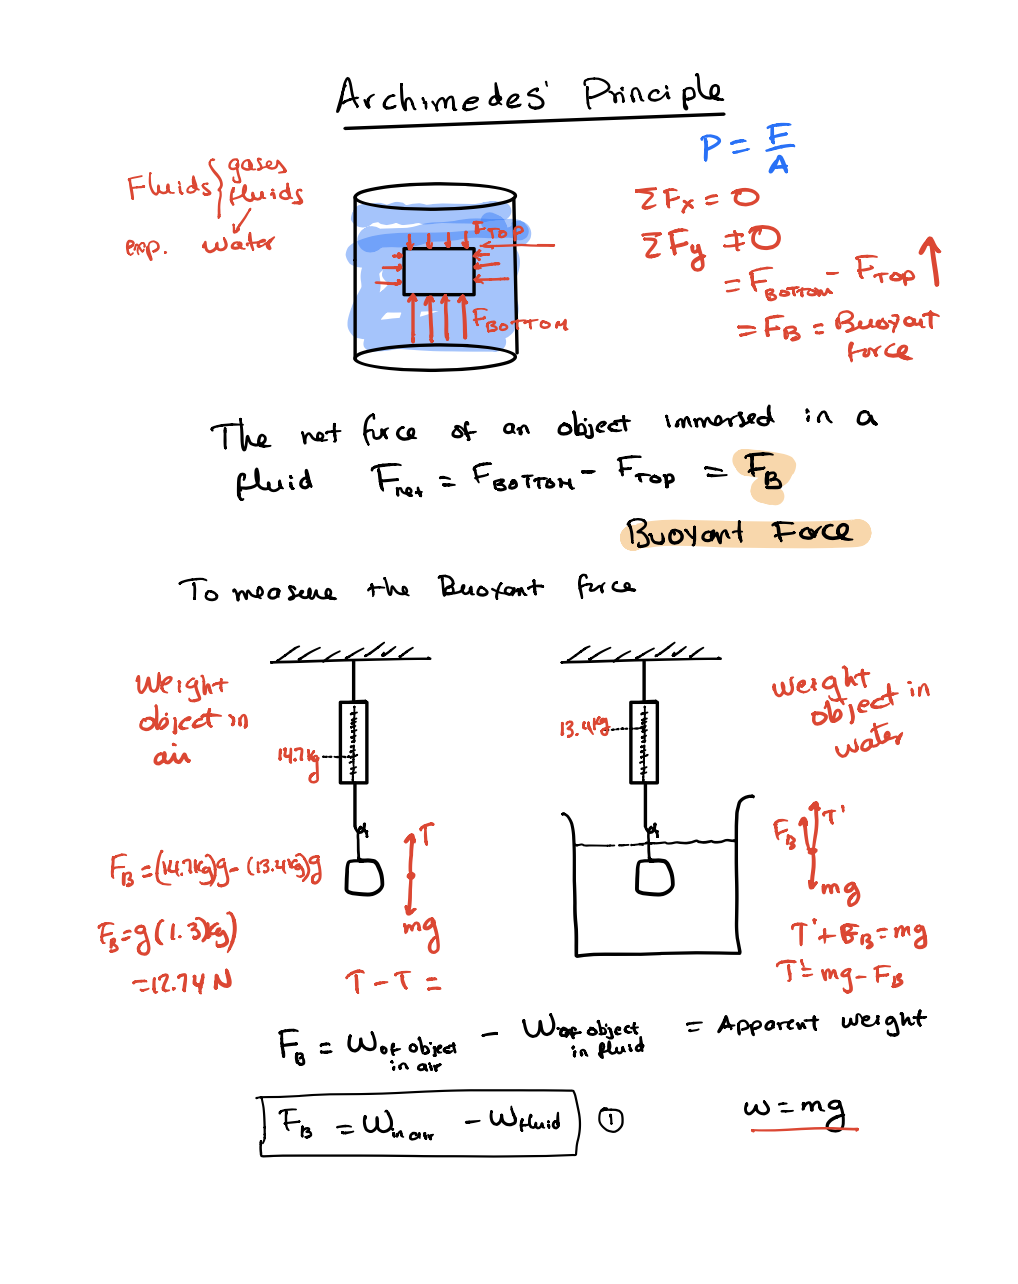 Archimedes' Principle
P = F/A
Fluids { gases
fluids
exp. water
ΣFx = 0
ΣFy ≠ 0
= FBOTTOM - FTOP ↑
= FB = Buoyant
force
FTOP
FBOTTOM
The net force of an object immersed in a
fluid Fnet = FBOTTOM - FTOP = FB
Buoyant Force
To measure the Buoyant force
Weight
object in
air
14.7kg
13.4kg
weight
object in
water
T
mg
FB T'
mg
FB = (14.7kg)g - (13.4kg)g
FB = g(1.3)kg)
= 12.74 N
T - T =
T' + FB = mg
T' = mg - FB
FB = Wof object in air - Wof object in fluid = Apparent weight
FB = Win air - Wfluid ①
w = mg